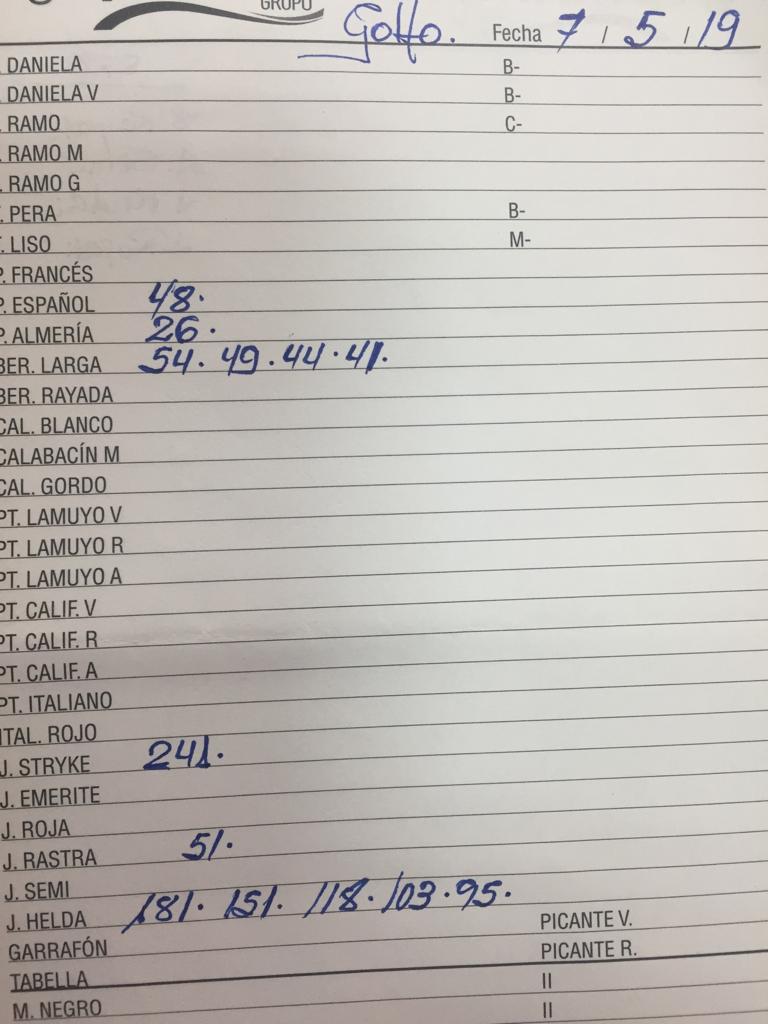 GRUPO
Golfo. Fecha 7 / 5 / 19
. DANIELA B-
. DANIELA V B-
. RAMO C-
. RAMO M
. RAMO G
. PERA B-
T. LISO M-
P. FRANCÉS
P. ESPAÑOL 48.
P. ALMERÍA 26.
BER. LARGA 54. 49. 44. 41.
BER. RAYADA
CAL. BLANCO
CALABACÍN M
CAL. GORDO
PT. LAMUYO V
PT. LAMUYO R
PT. LAMUYO A
PT. CALIF. V
PT. CALIF. R
PT. CALIF. A
PT. ITALIANO
ITAL. ROJO
J. STRYKE 241.
J. EMERITE
J. ROJA
J. RASTRA 51.
J. SEMI
J. HELDA 181. 151. 118. 103. 95.
PICANTE V.
GARRAFÓN PICANTE R.
TABELLA II
M. NEGRO II